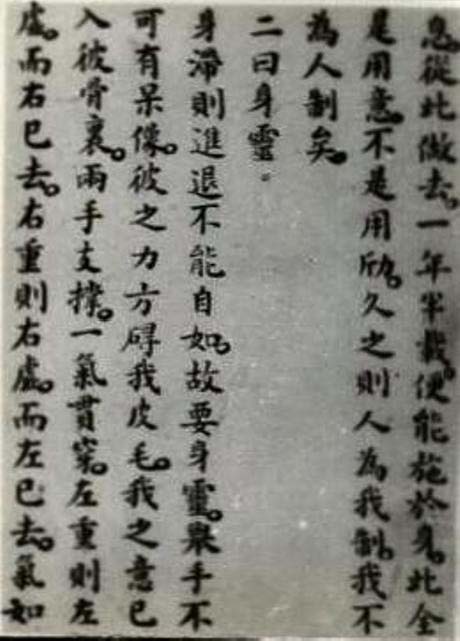 息。從此做去。一年半載。便能施於身。此全
是用意。不是用劤。久之則人為我制。我不
為人制矣。
二曰身靈。
身滯則進退不能自如。故要身靈。舉手不
可有呆像。彼之力方碍我皮毛。我之意已
入彼骨裏。兩手支撐。一氣貫穿。左重則左
虛。而右已去。右重則右虛。而左已去。氣如